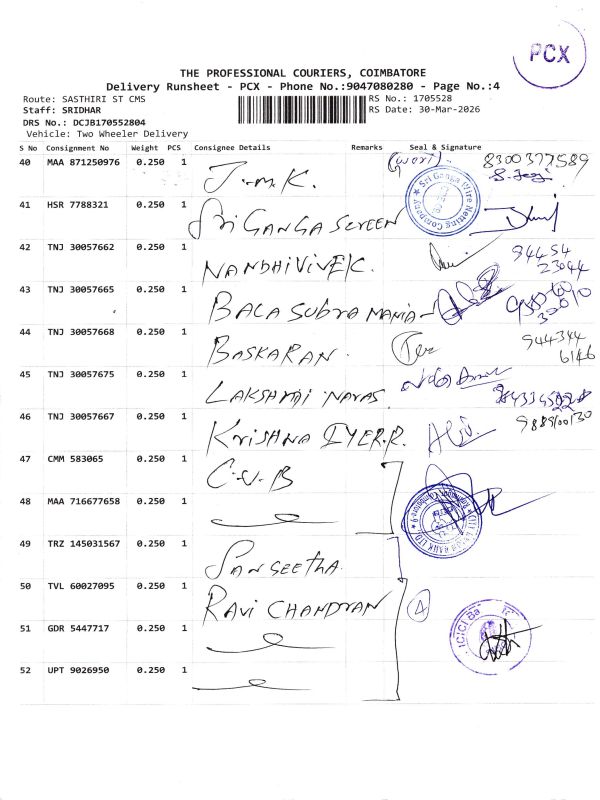 PCX
THE PROFESSIONAL COURIERS, COIMBATORE
Delivery Runsheet - PCX - Phone No.:9047080280 - Page No.:4
Route: SASTHIRI ST CMS RS No.: 1705528
Staff: SRIDHAR RS Date: 30-Mar-2026
DRS No.: DCJB170552804
Vehicle: Two Wheeler Delivery
S No Consignment No Weight PCS Consignee Details Remarks Seal & Signature
40 MAA 871250976 0.250 1 J.M.K. 8300377589
41 HSR 7788321 0.250 1 Sri GANGA SCREEN Sri Ganga Wire Netting Company
42 TNJ 30057662 0.250 1 NANDHIVIVEK. 94454 23044
43 TNJ 30057665 0.250 1 BALA SUBRAMANIA-
44 TNJ 30057668 0.250 1 BASKARAN. 944344 6146
45 TNJ 30057675 0.250 1 LAKSHMI NARAS
46 TNJ 30057667 0.250 1 KRISHNA IYER.R. 9889100130
47 CMM 583065 0.250 1 C.U.B
48 MAA 716677658 0.250 1
49 TRZ 145031567 0.250 1 SANGEETHA.
50 TVL 60027095 0.250 1 RAVI CHANDRAN 4
51 GDR 5447717 0.250 1 ICICI Ba
52 UPT 9026950 0.250 1